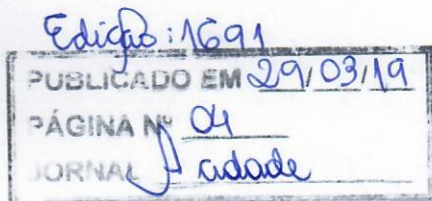 Edição: 1691
PUBLICADO EM 29/03/19
PÁGINA Nº 04
JORNAL A cidade